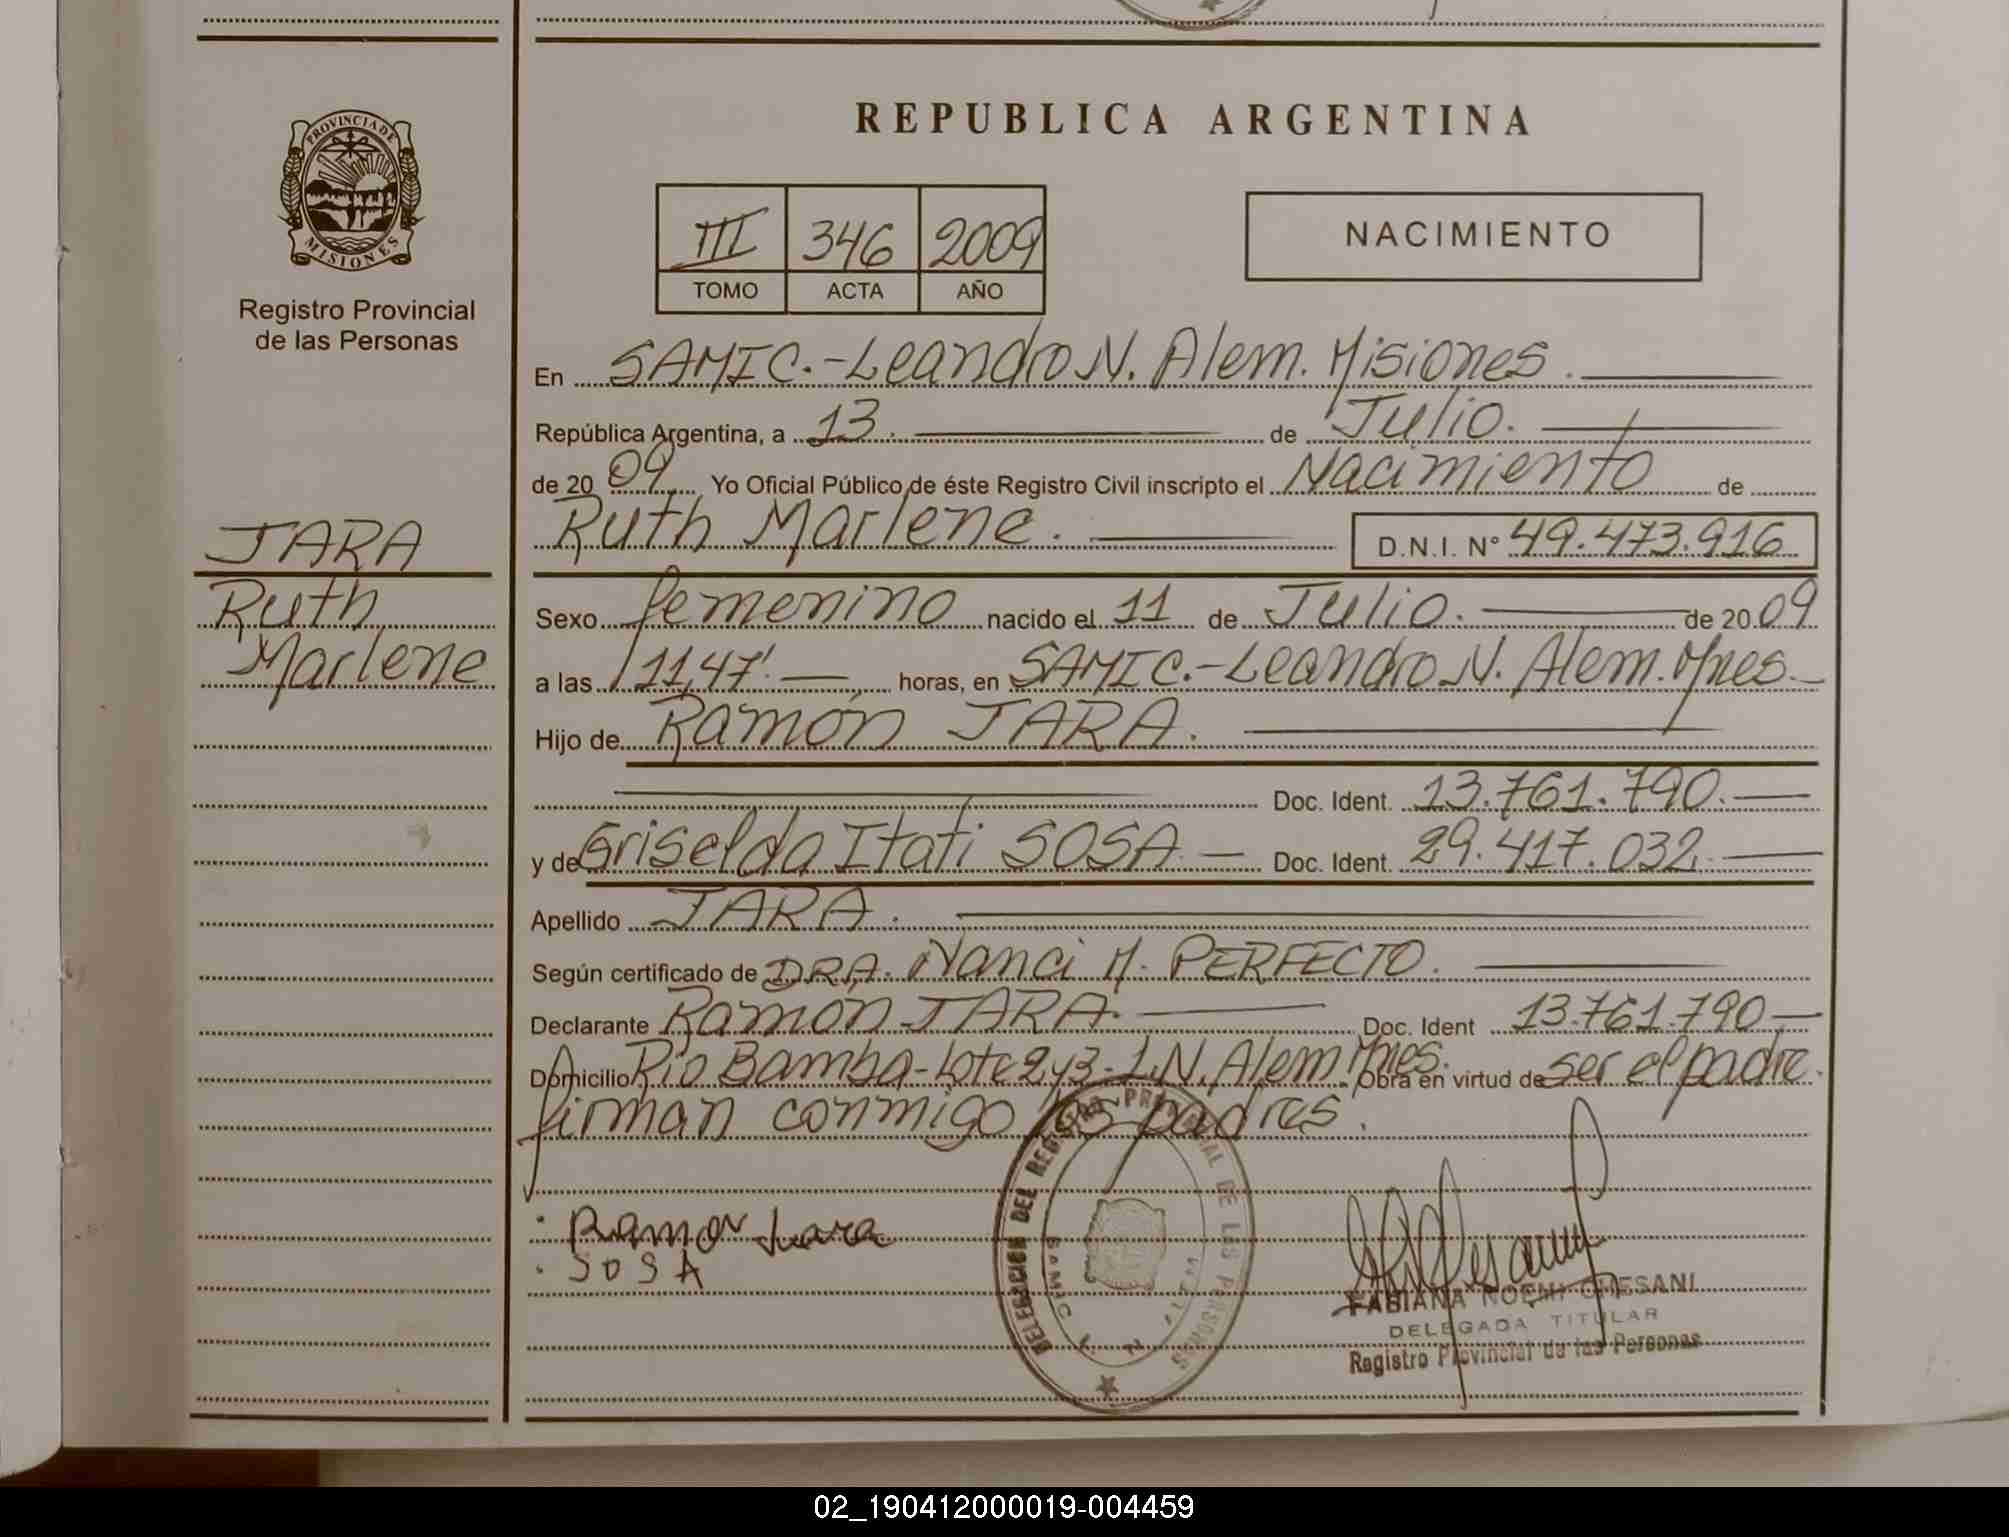 PROVINCIA DE
MISIONES
Registro Provincial
de las Personas
JARA
Ruth
Marlene
REPUBLICA ARGENTINA
III 346 2009
TOMO ACTA AÑO
NACIMIENTO
En SAMIC.-Leandro N. Alem. Misiones.
República Argentina, a 13. de Julio.
de 20 09 Yo Oficial Público de éste Registro Civil inscripto el Nacimiento de
Ruth Marlene. D.N.I. N° 49.473.916
Sexo femenino nacido el 11 de Julio. de 20 09
a las 11,47' horas, en SAMIC.-Leandro N. Alem. Mnes.
Hijo de Ramón JARA.
Doc. Ident. 13.761.790.
y de Griselda Itati SOSA Doc. Ident. 29.417.032
Apellido JARA.
Según certificado de DRA. Nanci M. PERFECTO.
Declarante Ramón JARA. Doc. Ident 13.761.790
Domicilio Rio Bamba-Lote 2 y 3-L.N. Alem Mnes. Obra en virtud de ser el padre.
firman conmigo los padres.
Ramon Jara
SOSA
DELEGACION DEL REGISTRO PROVINCIAL DE LAS PERSONAS
SAMIC L. N. ALEM
FABIANA NOEMI CHESANI
DELEGADA TITULAR
Registro Provincial de las Personas
02_190412000019-004459